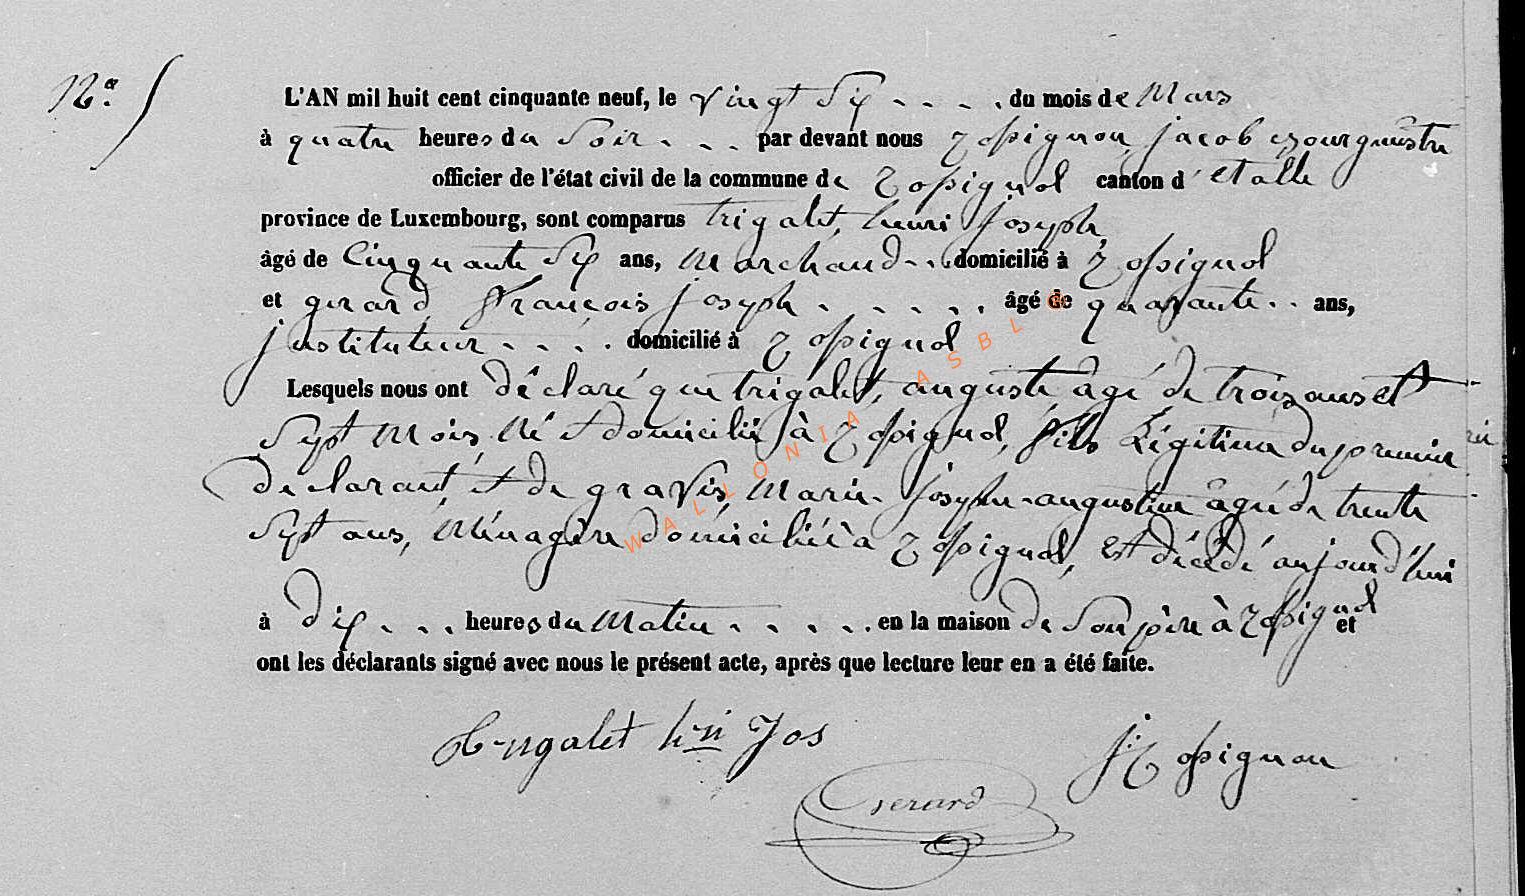 N.° 5
L'AN mil huit cent cinquante neuf, le vingt Six - - - - du mois de Mars
à quatre heures du Soir - - - par devant nous Rossignon jacob Bourgmestre
officier de l'état civil de la commune de Rossignol canton d'étalle
province de Luxembourg, sont comparus trigalet, henri joseph,
âgé de Cinquante Six ans, Marchand - - domicilié à Rossignol
et gerard François joseph - - - - - âgé de quarante - - ans,
instituteur - - - - domicilié à Rossignol
Lesquels nous ont déclaré que trigalet, auguste âgé de trois ans et
Sept Mois, Né et domicilié à Rossignol, fils Légitime du premier
Déclarant, et de gravis, Marie-josephe-augustine âgée de trente
Sept ans, Ménagère domiciliée à Rossignol, est décédé aujourd'hui
à dix - - - heures du Matin - - - - - en la maison de Son père à Rossignol et
ont les déclarants signé avec nous le présent acte, après que lecture leur en a été faite.
Trigalet hri Jos
J. Rossignon
Gerard
WALLONIA ASBL